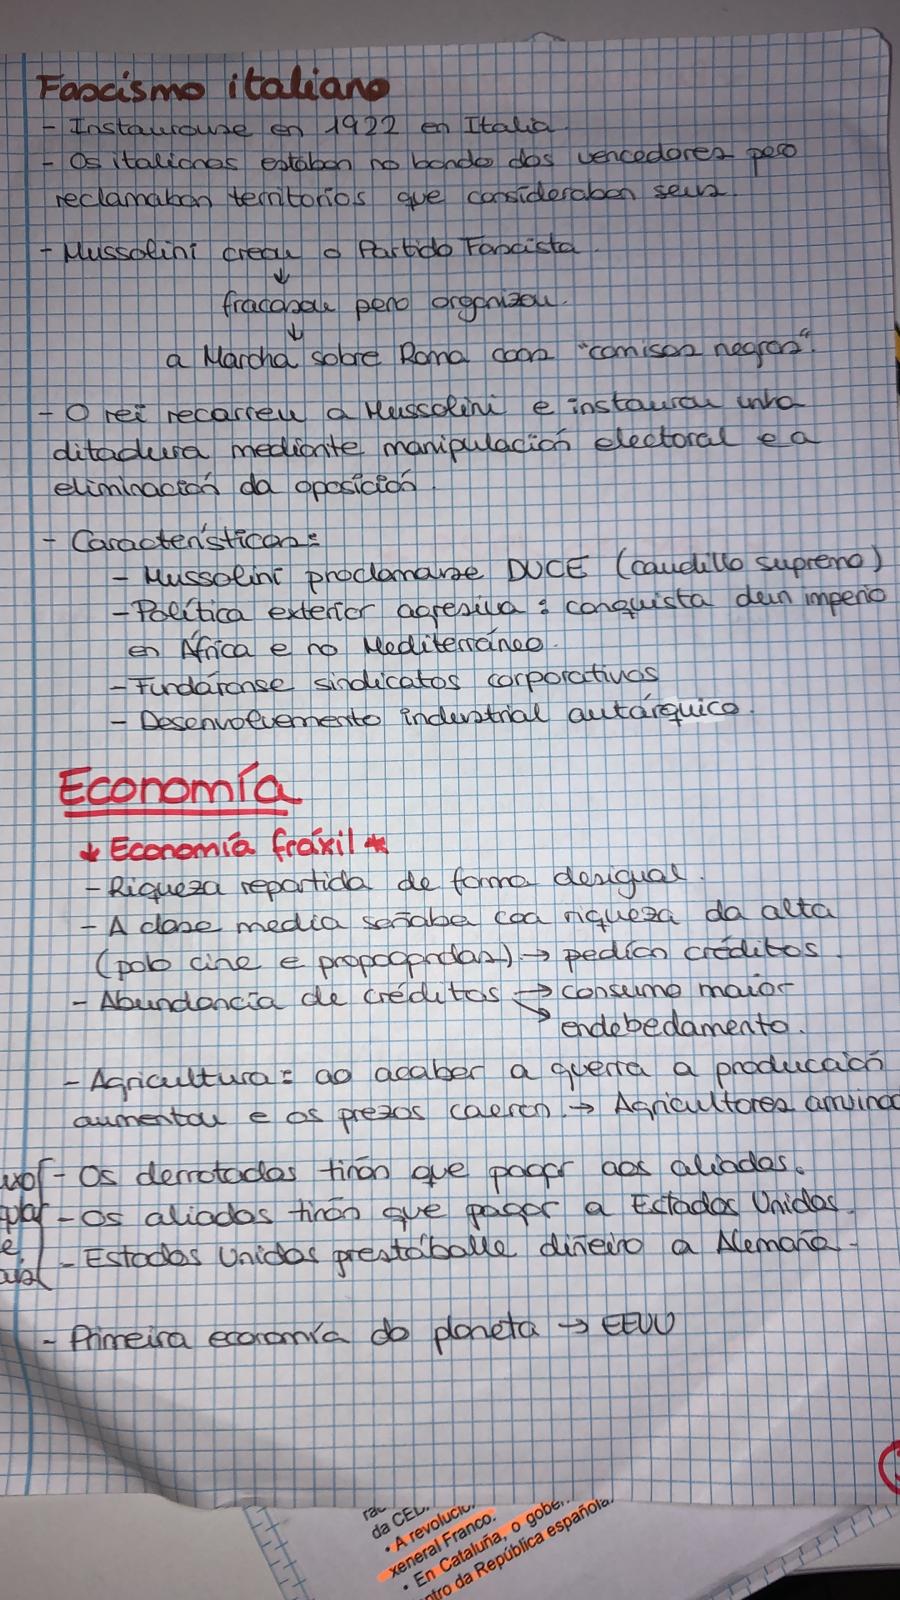 Fascismo italiano
- Instaurouse en 1922 en Italia.
- Os italianos estaban no bando dos vencedores pero
reclamaban territorios que consideraban seus.
- Mussolini creou o Partido Fascista.
↓
fracasou pero organizou.
↓
a Marcha sobre Roma coas "camisas negras".
- O rei recorreu a Mussolini e instaurou unha
ditadura mediante manipulación electoral e a
eliminación da oposición.
- Características:
- Mussolini proclamarse DUCE (caudillo supremo)
- Política exterior agresiva: conquista dun imperio
en África e no Mediterráneo.
- Fundáronse sindicatos corporativos
- Desenvolvemento industrial autárquico.
Economía
* Economía fráxil *
- Riqueza repartida de forma desigual.
- A clase media soñaba coa riqueza da alta
(polo cine e ) → pedían créditos.
- Abundancia de créditos → consumo maior
→ endebedamento.
- Agricultura: ao acabar a guerra a producción
aumentou e os prezos caeron. → Agricultores
- Os derrotados tiñan que pagar aos aliados.
- Os aliados tiñan que pagar a Estados Unidos.
- Estados Unidos prestáballe diñeiro a Alemaña.
- Primeira economía do planeta → EEUU
da
• A
xeneral Franco.
• En Cataluña, o
da República española.